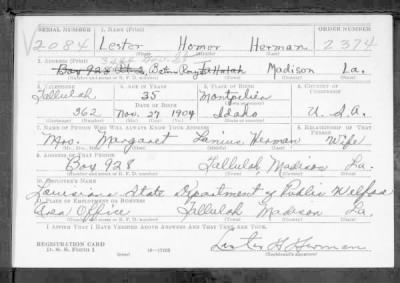 SERIAL NUMBER 1. NAME (Print) ORDER NUMBER
V2084 Lester Homor Herman 2374
(First) (Middle) (Last)
2. ADDRESS (Print)
Box 928 Tallulah Madison La.
(Number and street or R. F. D. number) (Town) (County) (State)
3. TELEPHONE 4. AGE IN YEARS 5. PLACE OF BIRTH 6. COUNTRY OF CITIZENSHIP
Tallulah 35 Montpelier
DATE OF BIRTH
362 Nov. 27 1904 Idaho U. S. A.
7. NAME OF PERSON WHO WILL ALWAYS KNOW YOUR ADDRESS 8. RELATIONSHIP OF THAT PERSON
Mrs. Margaret Lanius Herman Wife
9. ADDRESS OF THAT PERSON
Box 928 Tallulah, Madison La.
(Number and street or R. F. D. number) (Town) (County) (State)
10. EMPLOYER'S NAME
Louisiana State Department of Public Welfare
11. PLACE OF EMPLOYMENT OR BUSINESS
Area Office Tallulah Madison La.
(Number and street or R. F. D. number) (Town) (County) (State)
I AFFIRM THAT I HAVE VERIFIED ABOVE ANSWERS AND THAT THEY ARE TRUE.
REGISTRATION CARD
D. S. S. Form 1 (over) Lester H. Herman
(Registrant's signature)